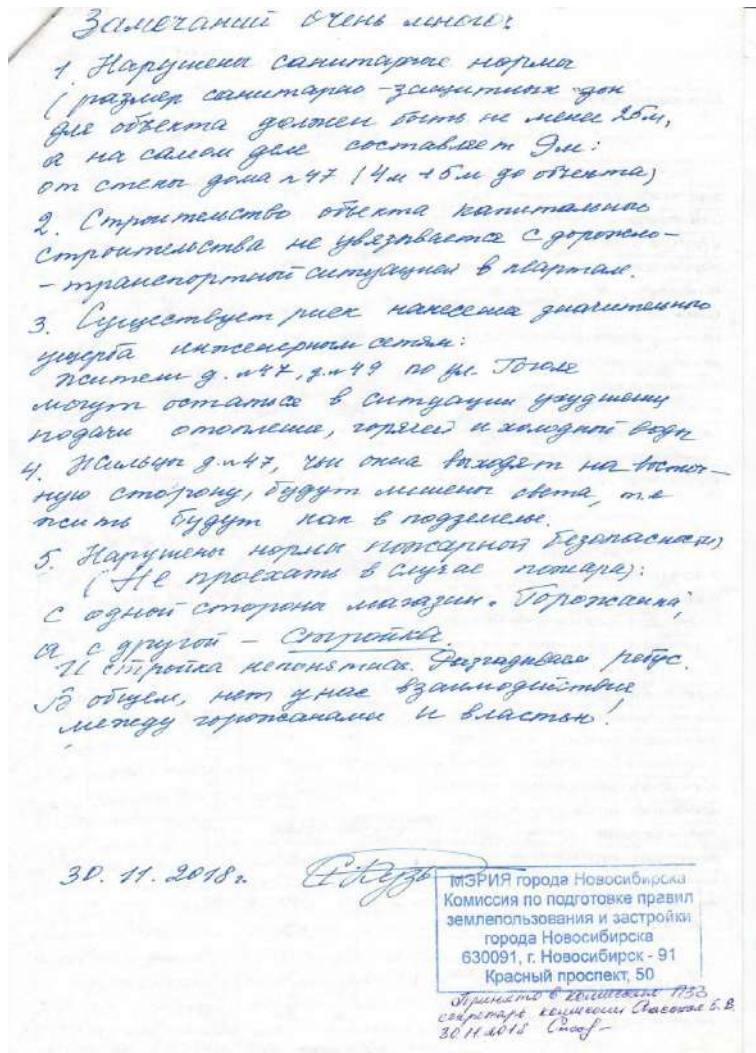 Замечаний очень много:
1. Нарушены санитарные нормы
(размер санитарно-защитных зон
для объекта должен быть не менее 25м,
а на самом деле составляет 9м:
от стены дома №47 (4м + 5м до объекта)
2. Строительство объекта капитального
строительства не увязывается с дорожно-
-транспортной ситуацией в квартале.
3. Существует риск нанесения значительного
ущерба инженерным сетям:
жители д.№47, д.№49 по ул. Гоголя
могут остаться в ситуации ухудшения
подачи отопления, горячей и холодной воды
4. Жильцы д.№47, чьи окна выходят на восточ-
ную сторону, будут лишены света, т.е
жить будут как в подземелье.
5. Нарушены нормы пожарной безопасности
(Не проехать в случае пожара):
с одной стороны магазин "Горожанка",
а с другой - стройка.
И стройка непонятная. Разгадываем ребус.
В общем, нет у нас взаимодействия
между горожанами и властью!
30.11.2018г.
МЭРИЯ города Новосибирска
Комиссия по подготовке правил
землепользования и застройки
города Новосибирска
630091, г. Новосибирск - 91
Красный проспект, 50
Принято в комиссии ПЗЗ
секретарь комиссии
30.11.2018